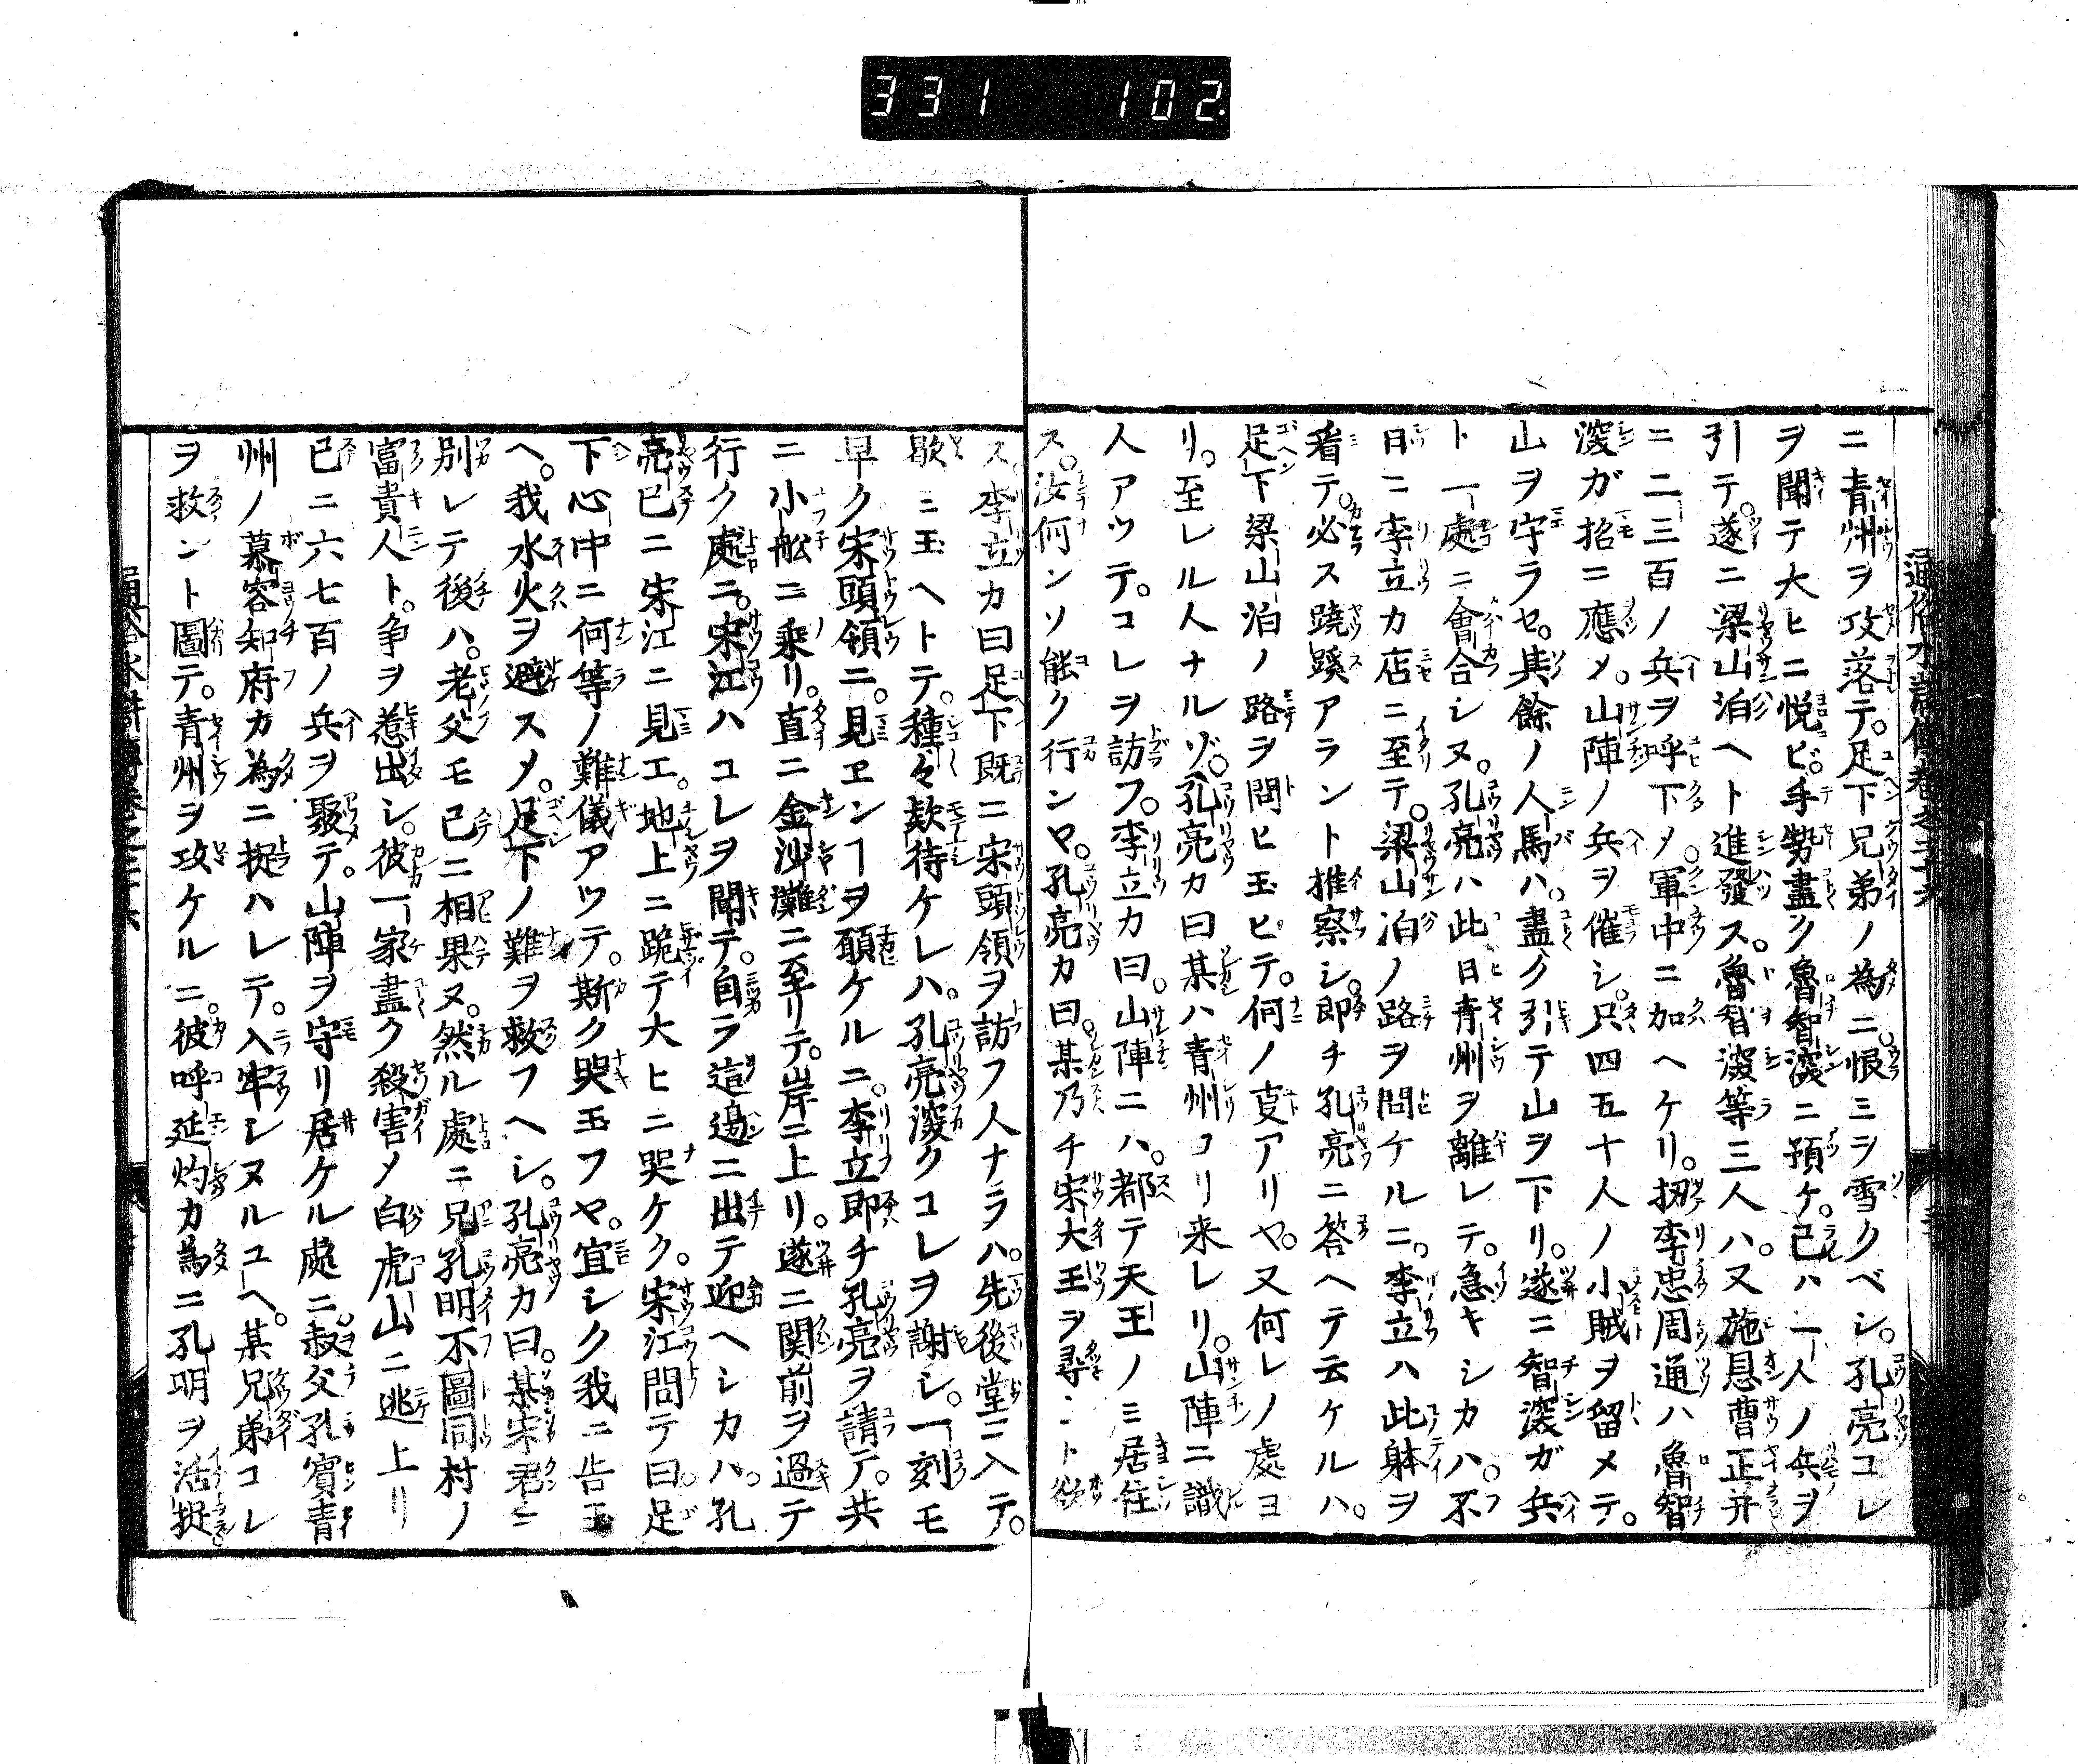 331 102.
ニ青州ヲ攻落テ。足下兄弟ノ為ニ。恨ミヲ雪クベシ。孔亮コレ
ヲ聞テ大ヒニ悦ビ。手勢盡ク魯智深ニ預ケ。己ハ一人ノ兵ヲ
引テ。遂ニ梁山泊ヘト進發ス。魯智深等三人ハ。又施恩曹正并
ニ二三百ノ兵ヲ呼下メ。軍中ニ加ヘケリ。扨李忠周通ハ魯智
深ガ招ニ應メ。山陣ノ兵ヲ催シ。只四五十人ノ小賊ヲ留メテ。
山ヲ守ラセ。其餘ノ人馬ハ。盡ク引テ山ヲ下リ。遂ニ智深ガ兵
ト一處ニ會合シヌ。孔亮ハ此日青州ヲ離レテ。急キシカハ。不
日ニ李立カ店ニ至テ。梁山泊ノ路ヲ問ケルニ。李立ハ此躰ヲ
看テ。必ス蹺蹊アラント推察シ。即チ孔亮ニ答ヘテ云ケルハ。
足下梁山泊ノ路ヲ問ヒ玉ヒテ。何ノ叓アリヤ。又何レノ處ヨ
リ。至レル人ナルゾ。孔亮カ曰某ハ青州ヨリ来レリ。山陣ニ識
人アツテ。コレヲ訪フ。李立カ曰。山陣ニハ。都テ天王ノミ居住
ス。汝何ンソ能ク行ンヤ。孔亮カ曰。某乃チ宋大王ヲ尋ント欲
ス。李立カ曰足下既ニ宋頭領ヲ訪フ人ナラハ。先後堂ニ入テ。
歇ミ玉ヘトテ。種々欵待ケレハ。孔亮深クコレヲ謝シ。一刻モ
早ク宋頭領ニ。見ヱンヿヲ願ケルニ。李立即チ孔亮ヲ請テ。共
ニ小舩ニ乗リ。直ニ金沙灘ニ至リテ。岸ニ上リ。遂ニ関前ヲ過テ
行ク處ニ。宋江ハコレヲ聞テ。自ラ這邊ニ出テ迎ヘシカハ。孔
亮已ニ宋江ニ見エ。地上ニ跪テ大ヒニ哭ケク。宋江問テ曰。足
下心中ニ何等ノ難儀アツテ。斯ク哭玉フヤ。宜シク我ニ告玉
ヘ。我水火ヲ避スメ。足下ノ難ヲ救フヘシ。孔亮カ曰。某宋君ニ
別レテ後ハ。老父モ已ニ相果ヌ。然ル處ニ兄孔明不圖同村ノ
富貴人ト。争ヲ惹出シ。彼一家盡ク殺害メ白虎山ニ逃上リ
已ニ六七百ノ兵ヲ聚テ。山陣ヲ守リ居ケル處ニ。叔父孔賓青
州ノ慕容知府カ為ニ捉ハレテ。入牢レヌルユヘ。某兄弟コレ
ヲ救ント圖テ。青州ヲ攻ケルニ。彼呼延灼カ為ニ孔明ヲ活捉